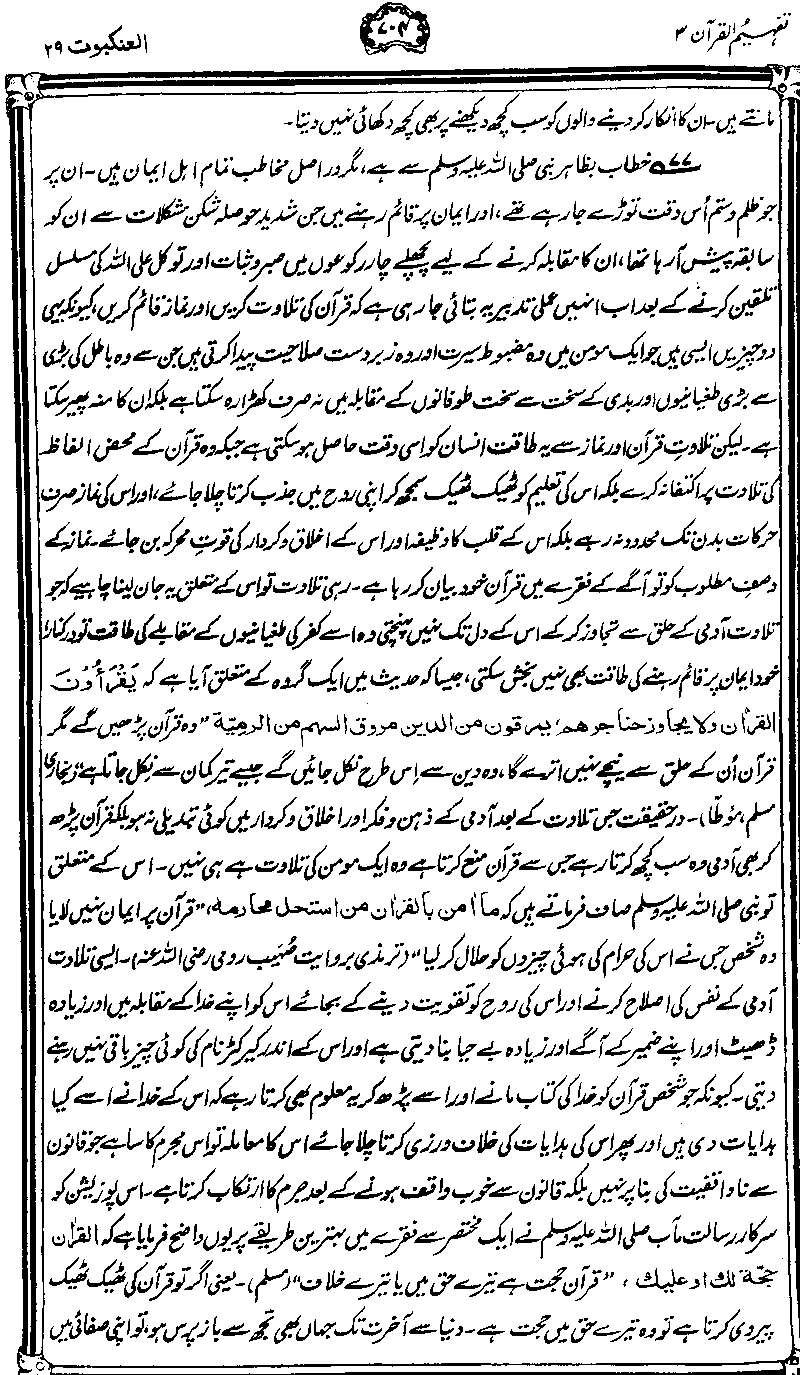 تفہیم القرآن ۳
۷۰۴
العنکبوت ۲۹
مانتے ہیں۔ ان کا انکار کر دینے والوں کو سب کچھ دیکھنے پر بھی کچھ دکھائی نہیں دیتا۔
۷۷ خطاب بظاہر نبی صلی اللہ علیہ وسلم سے ہے، مگر در اصل مخاطب تمام اہل ایمان ہیں۔ ان پر
جو ظلم و ستم اُس وقت توڑے جا رہے تھے، اور ایمان پر قائم رہنے میں جن شدید حوصلہ شکن مشکلات سے ان کو
سابقہ پیش آ رہا تھا، ان کا مقابلہ کرنے کے لیے پچھلے چار رکوعوں میں صبر و ثبات اور توکل علی اللہ کی مسلسل
تلقین کرنے کے بعد اب انہیں عملی تدبیر یہ بتائی جا رہی ہے کہ قرآن کی تلاوت کریں اور نماز قائم کریں، کیونکہ یہی
دو چیزیں ایسی ہیں جو ایک مومن میں وہ مضبوط سیرت اور وہ زبردست صلاحیت پیدا کرتی ہیں جن سے وہ باطل کی بڑی
سے بڑی طغیانیوں اور بدی کے سخت سے سخت طوفانوں کے مقابلہ میں نہ صرف کھڑا رہ سکتا ہے بلکہ ان کا منہ پھیر سکتا
ہے۔ لیکن تلاوتِ قرآن اور نماز سے یہ طاقت انسان کو اسی وقت حاصل ہو سکتی ہے جبکہ وہ قرآن کے محض الفاظ
کی تلاوت پر اکتفا نہ کرے بلکہ اس کی تعلیم کو ٹھیک ٹھیک سمجھ کر اپنی روح میں جذب کرتا چلا جائے، اور اس کی نماز صرف
حرکات بدن تک محدود نہ رہے بلکہ اس کے قلب کا وظیفہ اور اس کے اخلاق و کردار کی قوتِ محرکہ بن جائے۔ نماز کے
وصفِ مطلوب کو تو آگے کے فقرے میں قرآن خود بیان کر رہا ہے۔ رہی تلاوت تو اس کے متعلق یہ جان لینا چاہیے کہ جو
تلاوت آدمی کے حلق سے تجاوز کر کے اس کے دل تک نہیں پہنچتی وہ اسے کفر کی طغیانیوں کے مقابلے کی طاقت تو درکنار،
خود ایمان پر قائم رہنے کی طاقت بھی نہیں بخش سکتی، جیسا کہ حدیث میں ایک گروہ کے متعلق آیا ہے کہ یَقْرَأُوْنَ
القراٰن ولا یجاوز حناجرھم، یمرقون من الدین مروق السھم من الرمیّۃ "وہ قرآن پڑھیں گے مگر
قرآن اُن کے حلق سے نیچے نہیں اترے گا، وہ دین سے اِس طرح نکل جائیں گے جیسے تیر کمان سے نکل جاتا ہے" (بخاری،
مسلم، مُوطّا)۔ درحقیقت جس تلاوت کے بعد آدمی کے ذہن و فکر اور اخلاق و کردار میں کوئی تبدیلی نہ ہو بلکہ قرآن پڑھ
کر بھی آدمی وہ سب کچھ کرتا رہے جس سے قرآن منع کرتا ہے وہ ایک مومن کی تلاوت ہے ہی نہیں۔ اس کے متعلق
تو نبی صلی اللہ علیہ وسلم صاف فرماتے ہیں کہ ما اٰمن بالقراٰن من استحل محارمہ، "قرآن پر ایمان نہیں لایا
وہ شخص جس نے اس کی حرام کی ہوئی چیزوں کو حلال کر لیا" (ترمذی بروایت صُہَیب رومی رضی اللہ عنہ)۔ ایسی تلاوت
آدمی کے نفس کی اصلاح کرنے اور اس کی روح کو تقویت دینے کے بجائے اس کو اپنے خدا کے مقابلہ میں اور زیادہ
ڈھیٹ اور اپنے ضمیر کے آگے اور زیادہ بے حیا بنا دیتی ہے اور اس کے اندر کیرکٹر نام کی کوئی چیز باقی نہیں رہنے
دیتی۔ کیونکہ جو شخص قرآن کو خدا کی کتاب مانے اور اسے پڑھ کر یہ معلوم بھی کرتا رہے کہ اس کے خدا نے اسے کیا
ہدایات دی ہیں اور پھر اس کی ہدایات کی خلاف ورزی کرتا چلا جائے اس کا معاملہ تو اس مجرم کا سا ہے جو قانون
سے ناواقفیت کی بنا پر نہیں بلکہ قانون سے خوب واقف ہونے کے بعد جرم کا ارتکاب کرتا ہے۔ اس پوزیشن کو
سرکار رسالت مآب صلی اللہ علیہ وسلم نے ایک مختصر سے فقرے میں بہترین طریقے پر یوں واضح فرمایا ہے کہ القراٰن
حجّۃ لک او علیک، "قرآن حجت ہے تیرے حق میں یا تیرے خلاف" (مسلم)۔ یعنی اگر تو قرآن کی ٹھیک ٹھیک
پیروی کرتا ہے تو وہ تیرے حق میں حجت ہے۔ دنیا سے آخرت تک جہاں بھی تجھ سے باز پرس ہو، تو اپنی صفائی میں